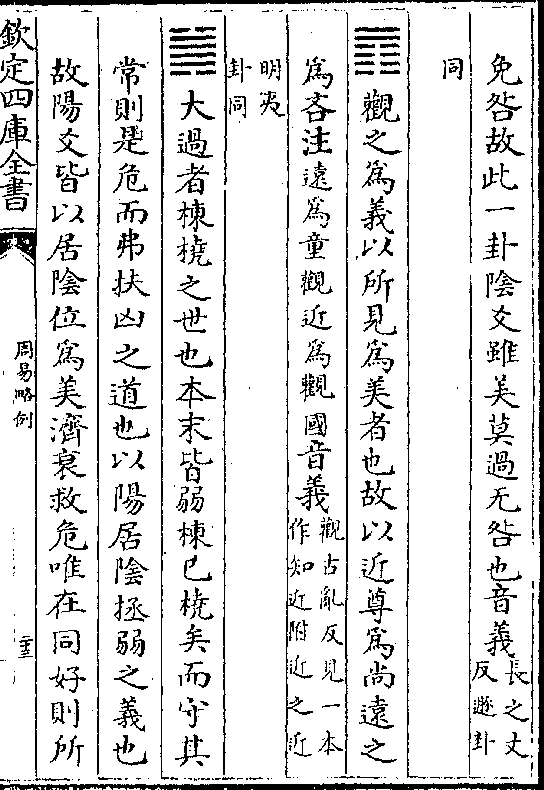 免咎故此一卦陰爻雖美莫過无咎也音義長之丈
反遯卦
同
䷓觀之爲義以所見爲美者也故以近尊爲尚遠之
爲吝注遠爲童觀近爲觀國音義觀古亂反見一本
作知近附近之近
明夷
卦同
䷛大過者棟橈之世也本末皆弱棟已橈矣而守其
常則是危而弗扶凶之道也以陽居陰拯弱之義也
故陽爻皆以居陰位爲美濟衰救危唯在同好則所
欽定四庫全書
周易略例
二十三